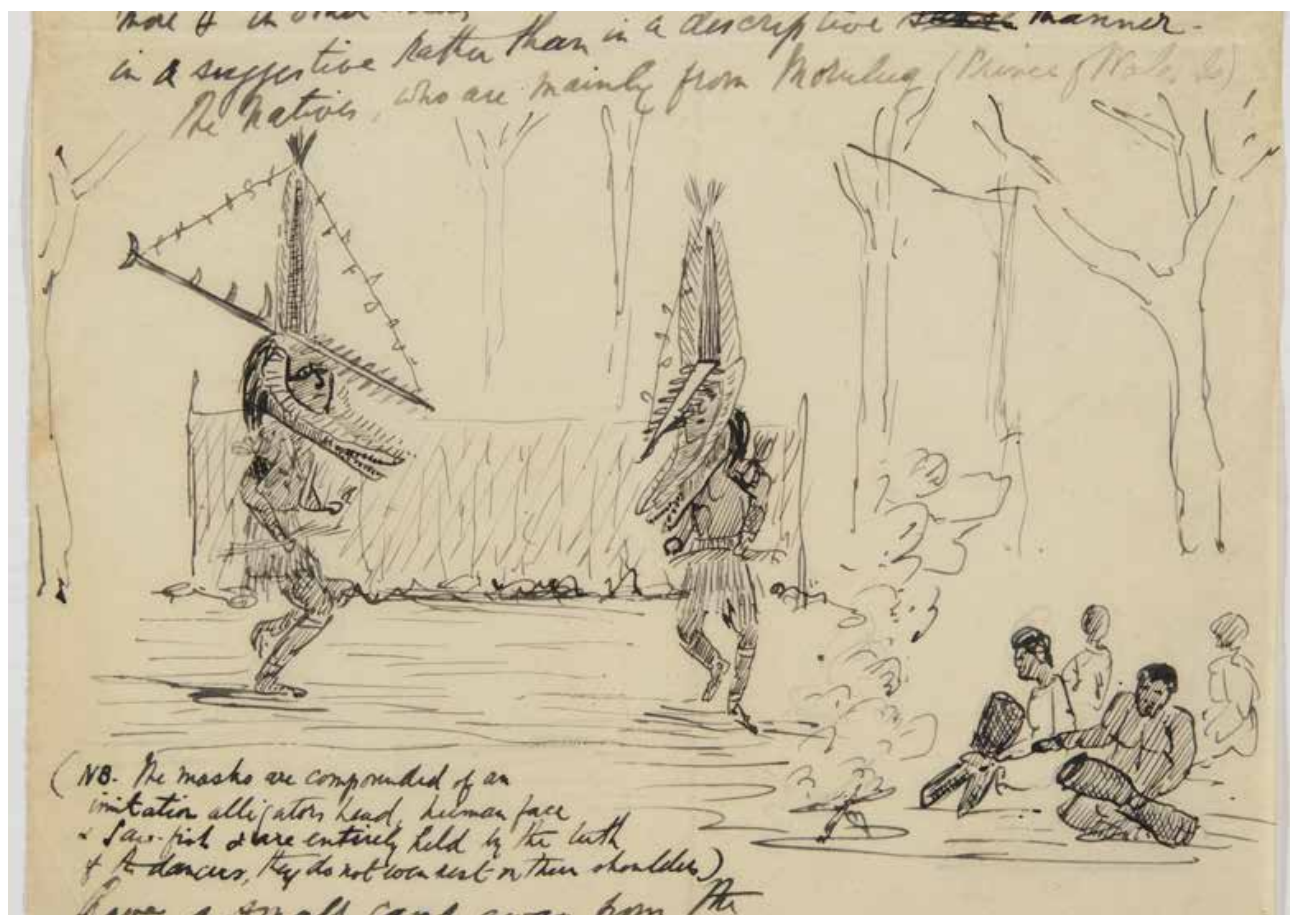 more & in other
in a suggestive rather than in a descriptive manner.
The natives, who are mainly from Moralug (Prince of Wales Is)
(NB. The masks are compounded of an
imitation alligators head, human face
& saw-fish & are entirely held by the teeth
of the dancers, they do not even rest on their shoulders)
a small camp away from the